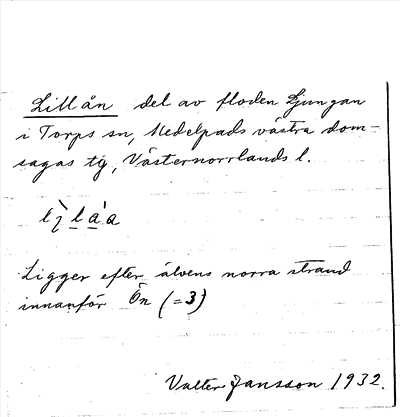 Lillån del av floden Ljungan
i Torps sn, Medelpads västra dom-
sagas tg, Västernorrlands l.
Ligger efter älvens norra strand
innanför Ön (=3)
Valter Jansson 1932.